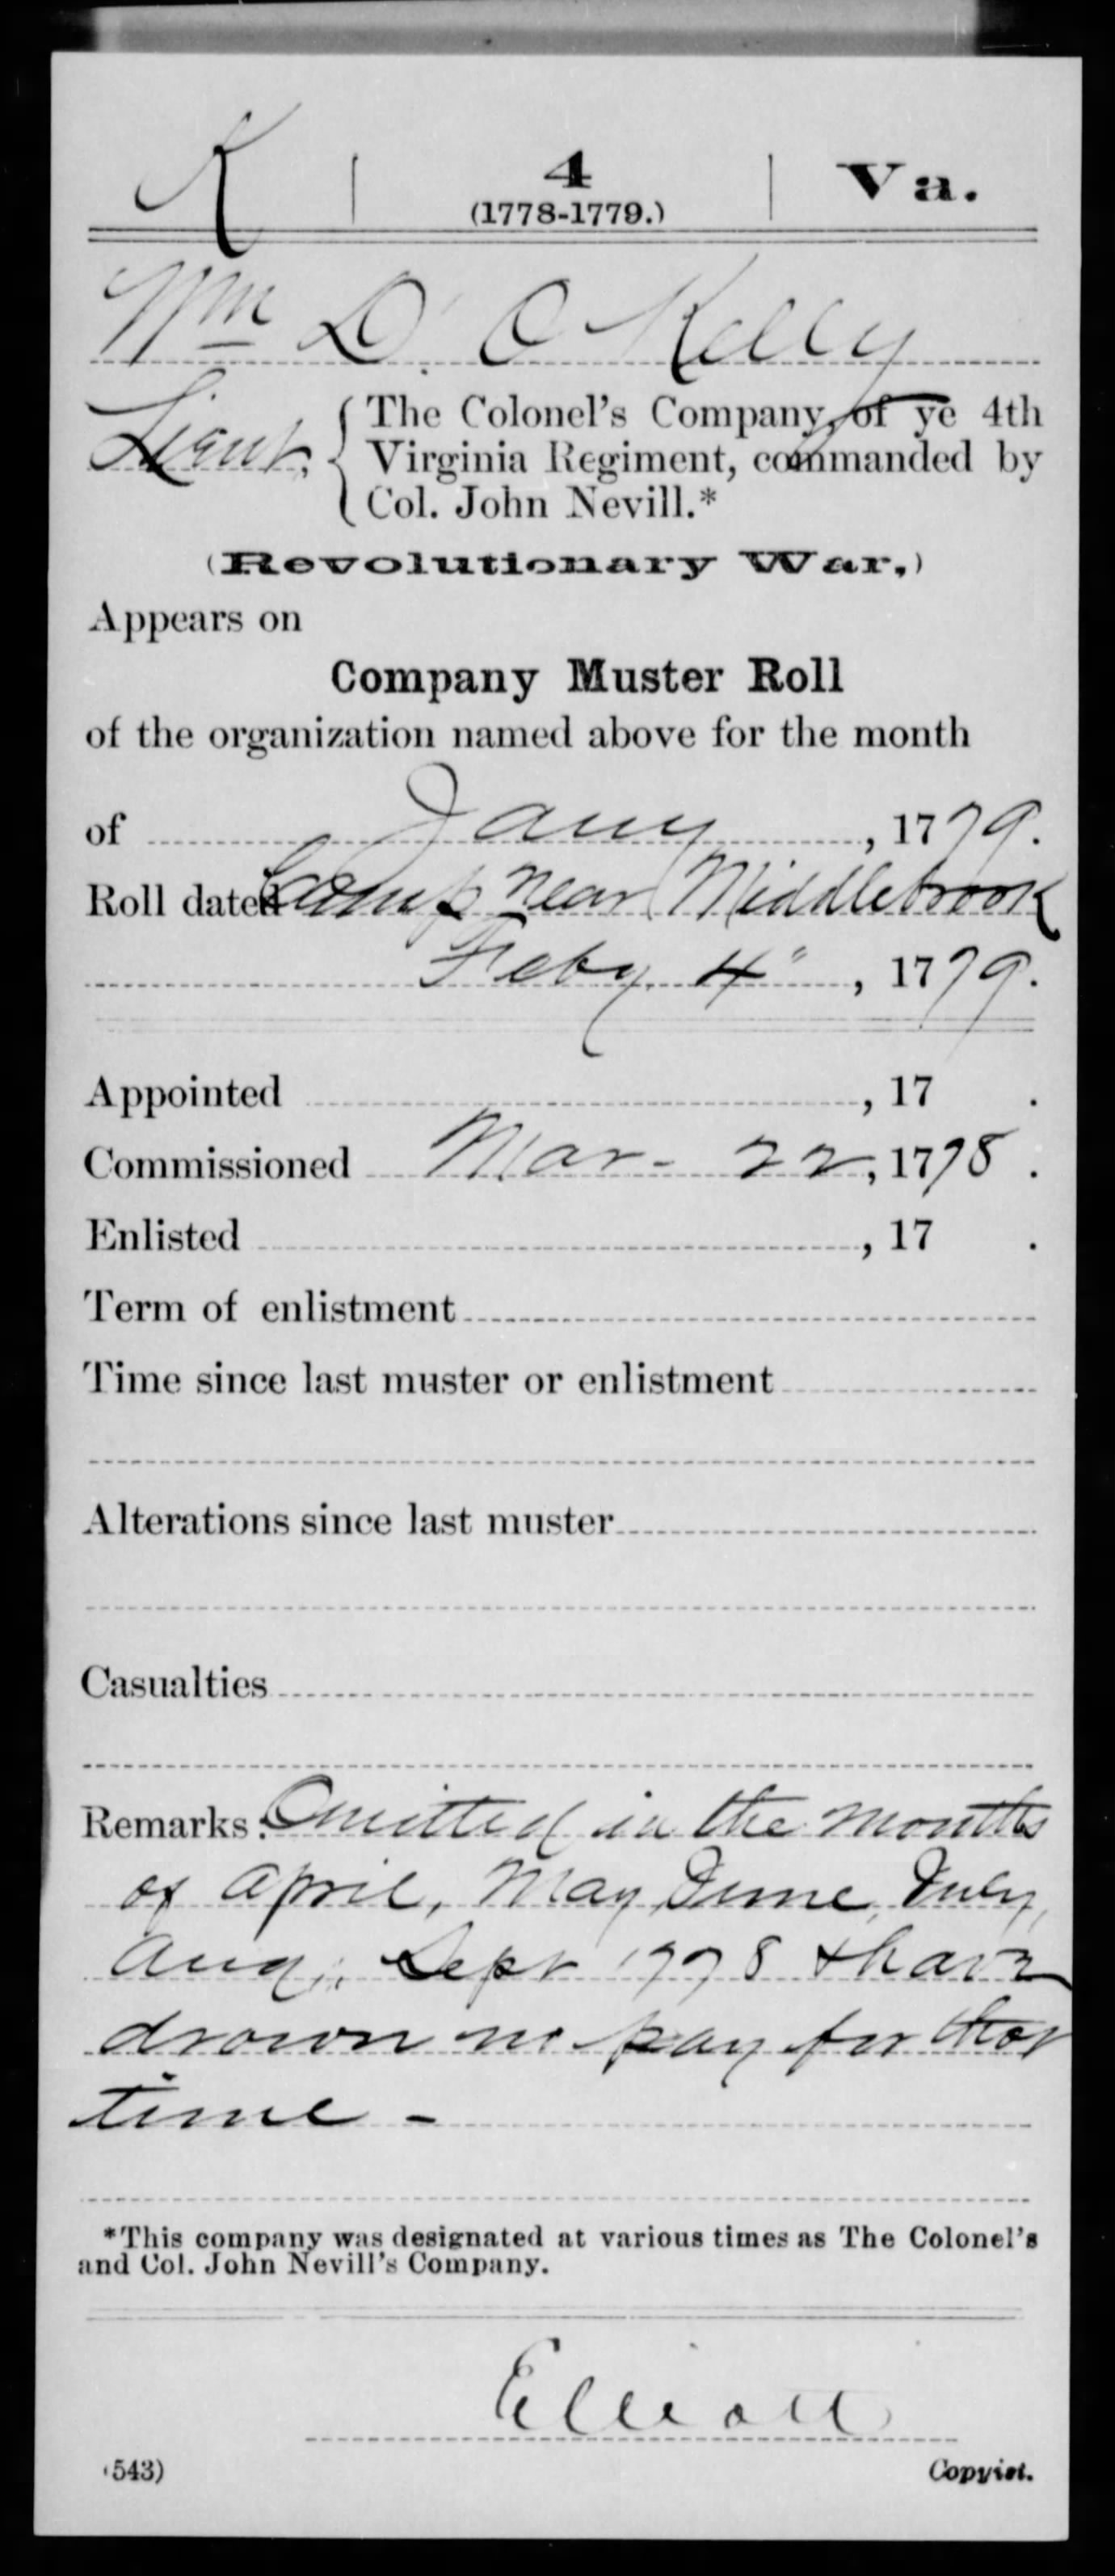 K | 4 | Va.
(1778-1779.)
Wm D. O Kelly
Lieut, { The Colonel's Company, of ye 4th
Virginia Regiment, commanded by
Col. John Nevill.*
(Revolutionary War.)
Appears on
Company Muster Roll
of the organization named above for the month
of Jany, 1779.
Roll dated Camp near Middlebrook
Feby 4", 1779.
Appointed , 17 .
Commissioned Mar- 22, 1778 .
Enlisted , 17 .
Term of enlistment
Time since last muster or enlistment
Alterations since last muster
Casualties
Remarks: Omitted in the months
of April, May, June, July,
Aug., Sept 1778 & have
drawn no pay for that
time -
*This company was designated at various times as The Colonel's
and Col. John Nevill's Company.
Elliott
(543) Copyist.